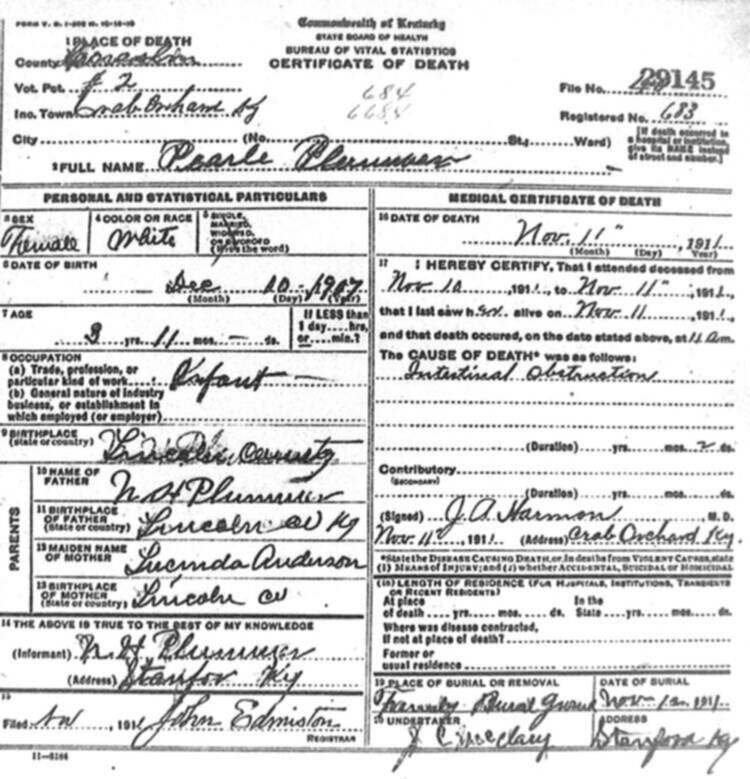 FORM V. S. 1
Commonwealth of Kentucky
STATE BOARD OF HEALTH
BUREAU OF VITAL STATISTICS
CERTIFICATE OF DEATH
1 PLACE OF DEATH
County
Vot. Pct. # 2
Ino. Town Crab Orchard Ky
684
6684
File No. 29145
Registered No. 683
City (No. St.; Ward)
[If death occurred in a hospital or institution, give its NAME instead of street and number.]
2 FULL NAME Pearle Plummer
PERSONAL AND STATISTICAL PARTICULARS
3 SEX
Female
4 COLOR OR RACE
White
5 SINGLE, MARRIED, WIDOWED, OR DIVORCED
(Write the word)
6 DATE OF BIRTH
Dec 10 1907
(Month) (Day) (Year)
7 AGE
3 yrs. 11 mos. - ds.
If LESS than
1 day....hrs.
or.... min.?
8 OCCUPATION
(a) Trade, profession, or
particular kind of work Infant
(b) General nature of industry
business, or establishment in
which employed (or employer)
9 BIRTHPLACE
(State or country) Lincoln County
PARENTS
10 NAME OF
FATHER N H Plummer
11 BIRTHPLACE
OF FATHER
(State or country) Lincoln co Ky
12 MAIDEN NAME
OF MOTHER Lucinda Anderson
13 BIRTHPLACE
OF MOTHER
(State or country) Lincoln co
14 THE ABOVE IS TRUE TO THE BEST OF MY KNOWLEDGE
(Informant) N. H. Plummer
(Address) Stanfor Ky
15
Filed 191 John Edmiston
REGISTRAR
11-5184
MEDICAL CERTIFICATE OF DEATH
16 DATE OF DEATH
Nov. 11" , 1911
(Month) (Day) (Year)
17 I HEREBY CERTIFY, That I attended deceased from
Nov 10 1911, to Nov 11" 1911,
that I last saw her alive on Nov 11 , 1911,
and that death occurred, on the date stated above, at 11 am.
The CAUSE OF DEATH* was as follows:
Intestinal Obstruction
(Duration) yrs. mos. 2 ds.
Contributory
(SECONDARY)
(Duration) yrs. mos. ds.
(Signed) J. A. Harmon M. D.
Nov. 11 , 1911 (Address) Crab Orchard Ky.
*State the DISEASE CAUSING DEATH, or, in deaths from VIOLENT CAUSES, state
(1) MEANS OF INJURY; and (2) whether ACCIDENTAL, SUICIDAL or HOMICIDAL
(18) LENGTH OF RESIDENCE (FOR HOSPITALS, INSTITUTIONS, TRANSIENTS
OR RECENT RESIDENTS)
At place In the
of death yrs. mos. ds. State yrs. mos. ds.
Where was disease contracted,
If not at place of death?
Former or
usual residence
19 PLACE OF BURIAL OR REMOVAL
Burial Ground
DATE OF BURIAL
Nov 12 1911
20 UNDERTAKER
J C McClary
ADDRESS
Stanford Ky